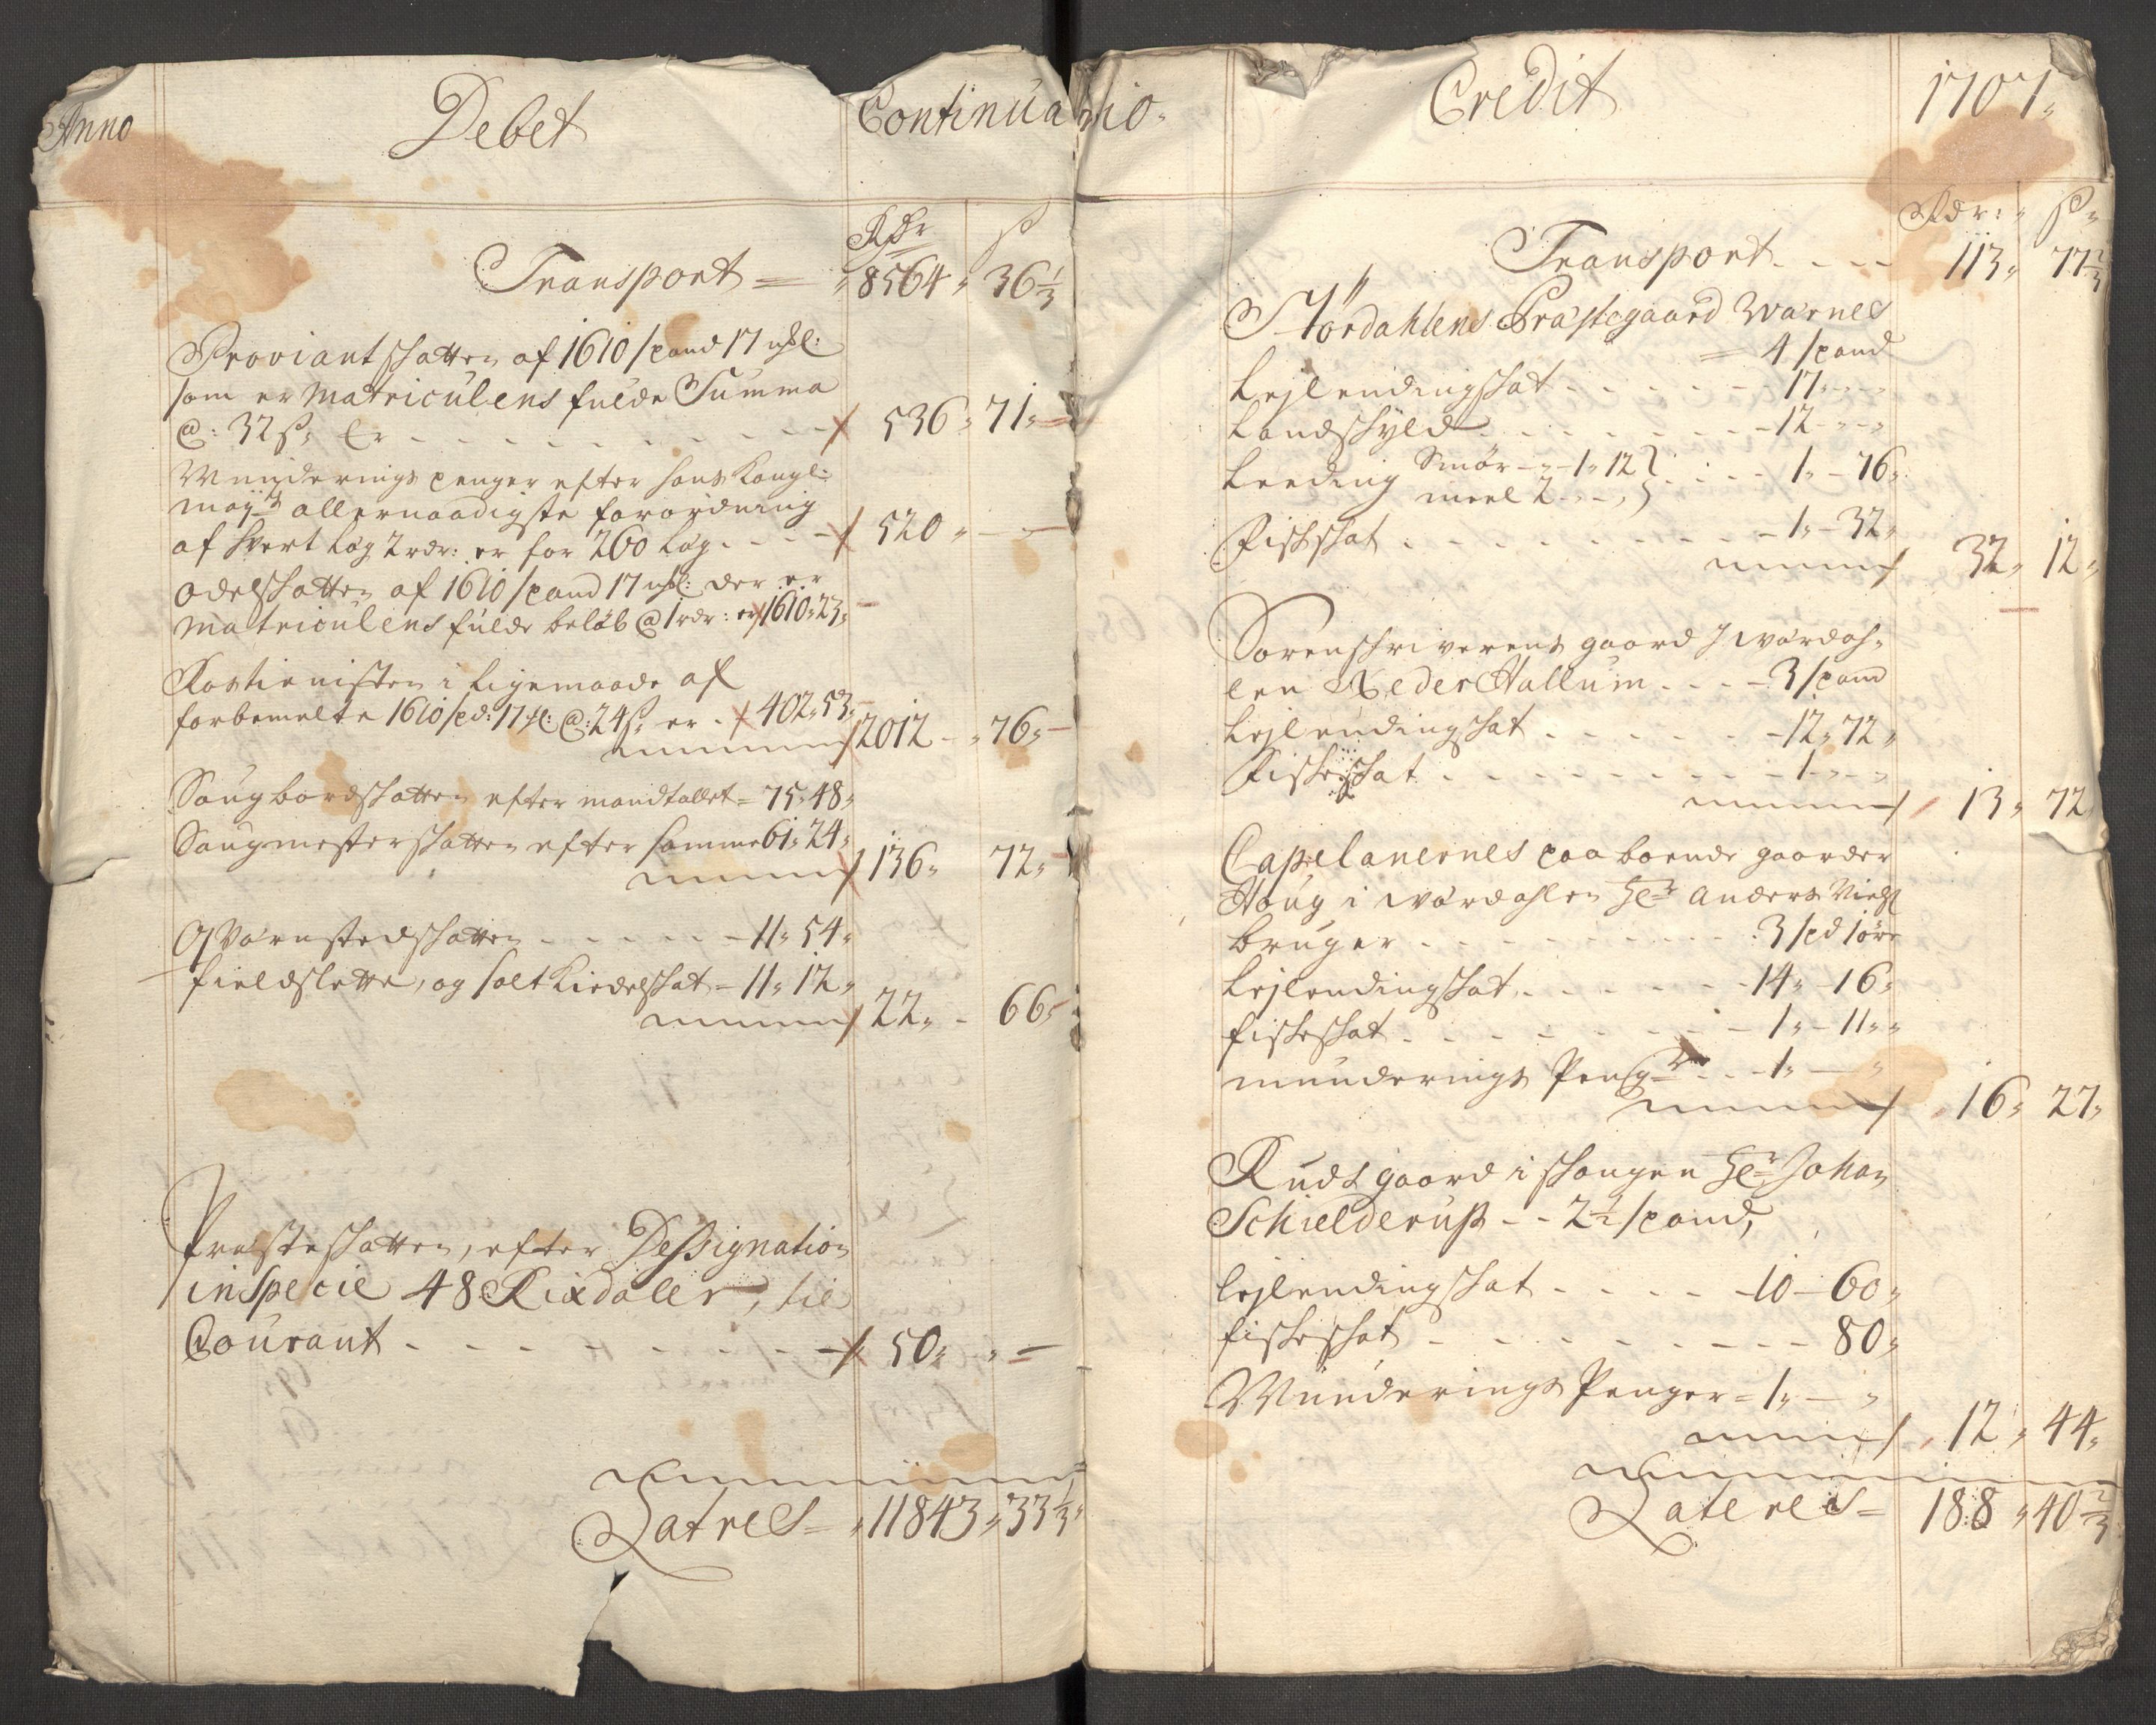 Anno Debet Continua
Rdr ß
Transport = 8564 " 36 1/3
Proviantschatten af 1610 spand 17 mßl:
som er Matriculens fulde Summa
@: 32 ß: Er - - - 536 " 71 "
Munderings penger efter hans Kongl:
may:ts allernaadigste forordning
af hvert Læg 2 rdr: er for 260 Læg - - - 520 " -
Odelschatten af 1610 spand 17 mßl: der er
Matriculens fulde beløb @ 1 rdr: er 1610 " 23 "
Rostienisten i ligemaade af
forbemelte 1610 spd: 17 ßl: @: 24 ß: er - 402 " 53 "
2012 - " 76 "
Saugbordschatten efter mandtallet = 75 " 48 "
Saugmesterschatten efter samme 61 " 24 "
136 " 72 "
Qvernstedschatten - - - 11 " 54 "
fieldslette, og salt Kiedelschat - 11 " 12 "
22 " - 66 "
Presteschatten, efter Dessignation
in Specie 48 Rixdaler, til
Courant - - - 50 " " -
Latres = " 11843 " 33 1/3 "
tio. Credit 1707 "
Rdr: " ß "
Transport - - - 113 " 77 2/3
Størdahlens Præstegaard Wærnes
= 4 spand
Lejlendingschat - - - 17 " - "
Landschyld - - - 12 - " - "
Leeding Smør - " - 1 " 12 } - - - 1 " - 76 "
meel 2 - " - "
Fischschat - - - 1 " - 32 "
32 " 12 "
Sorenschriverens gaard i wærdah-
len Neder Hallum - - - 3 spand
Lejlendingschat - - - 12 " 72 "
Fischeschat - - - 1 " - "
13 " 72
Capelanernes paaboende gaarder
Houg i wærdahlen Hr Anders
bruger - - - 3 spd 1 øre
Lejlendingschat - - - 14 " - 16 "
fischeschat - - - 1 " - 11 " "
munderings Peng - - - 1 " - "
16 " 27 "
Ruds gaard i schougen Hr Johan
Schielderup - - 2 1/2 spand,
lejlendingschat - - - 10 - 60 "
fischeschat - - - 80 "
Munderings Penger = 1 " - "
12 " 44 "
Lateres = 188 " 40 2/3